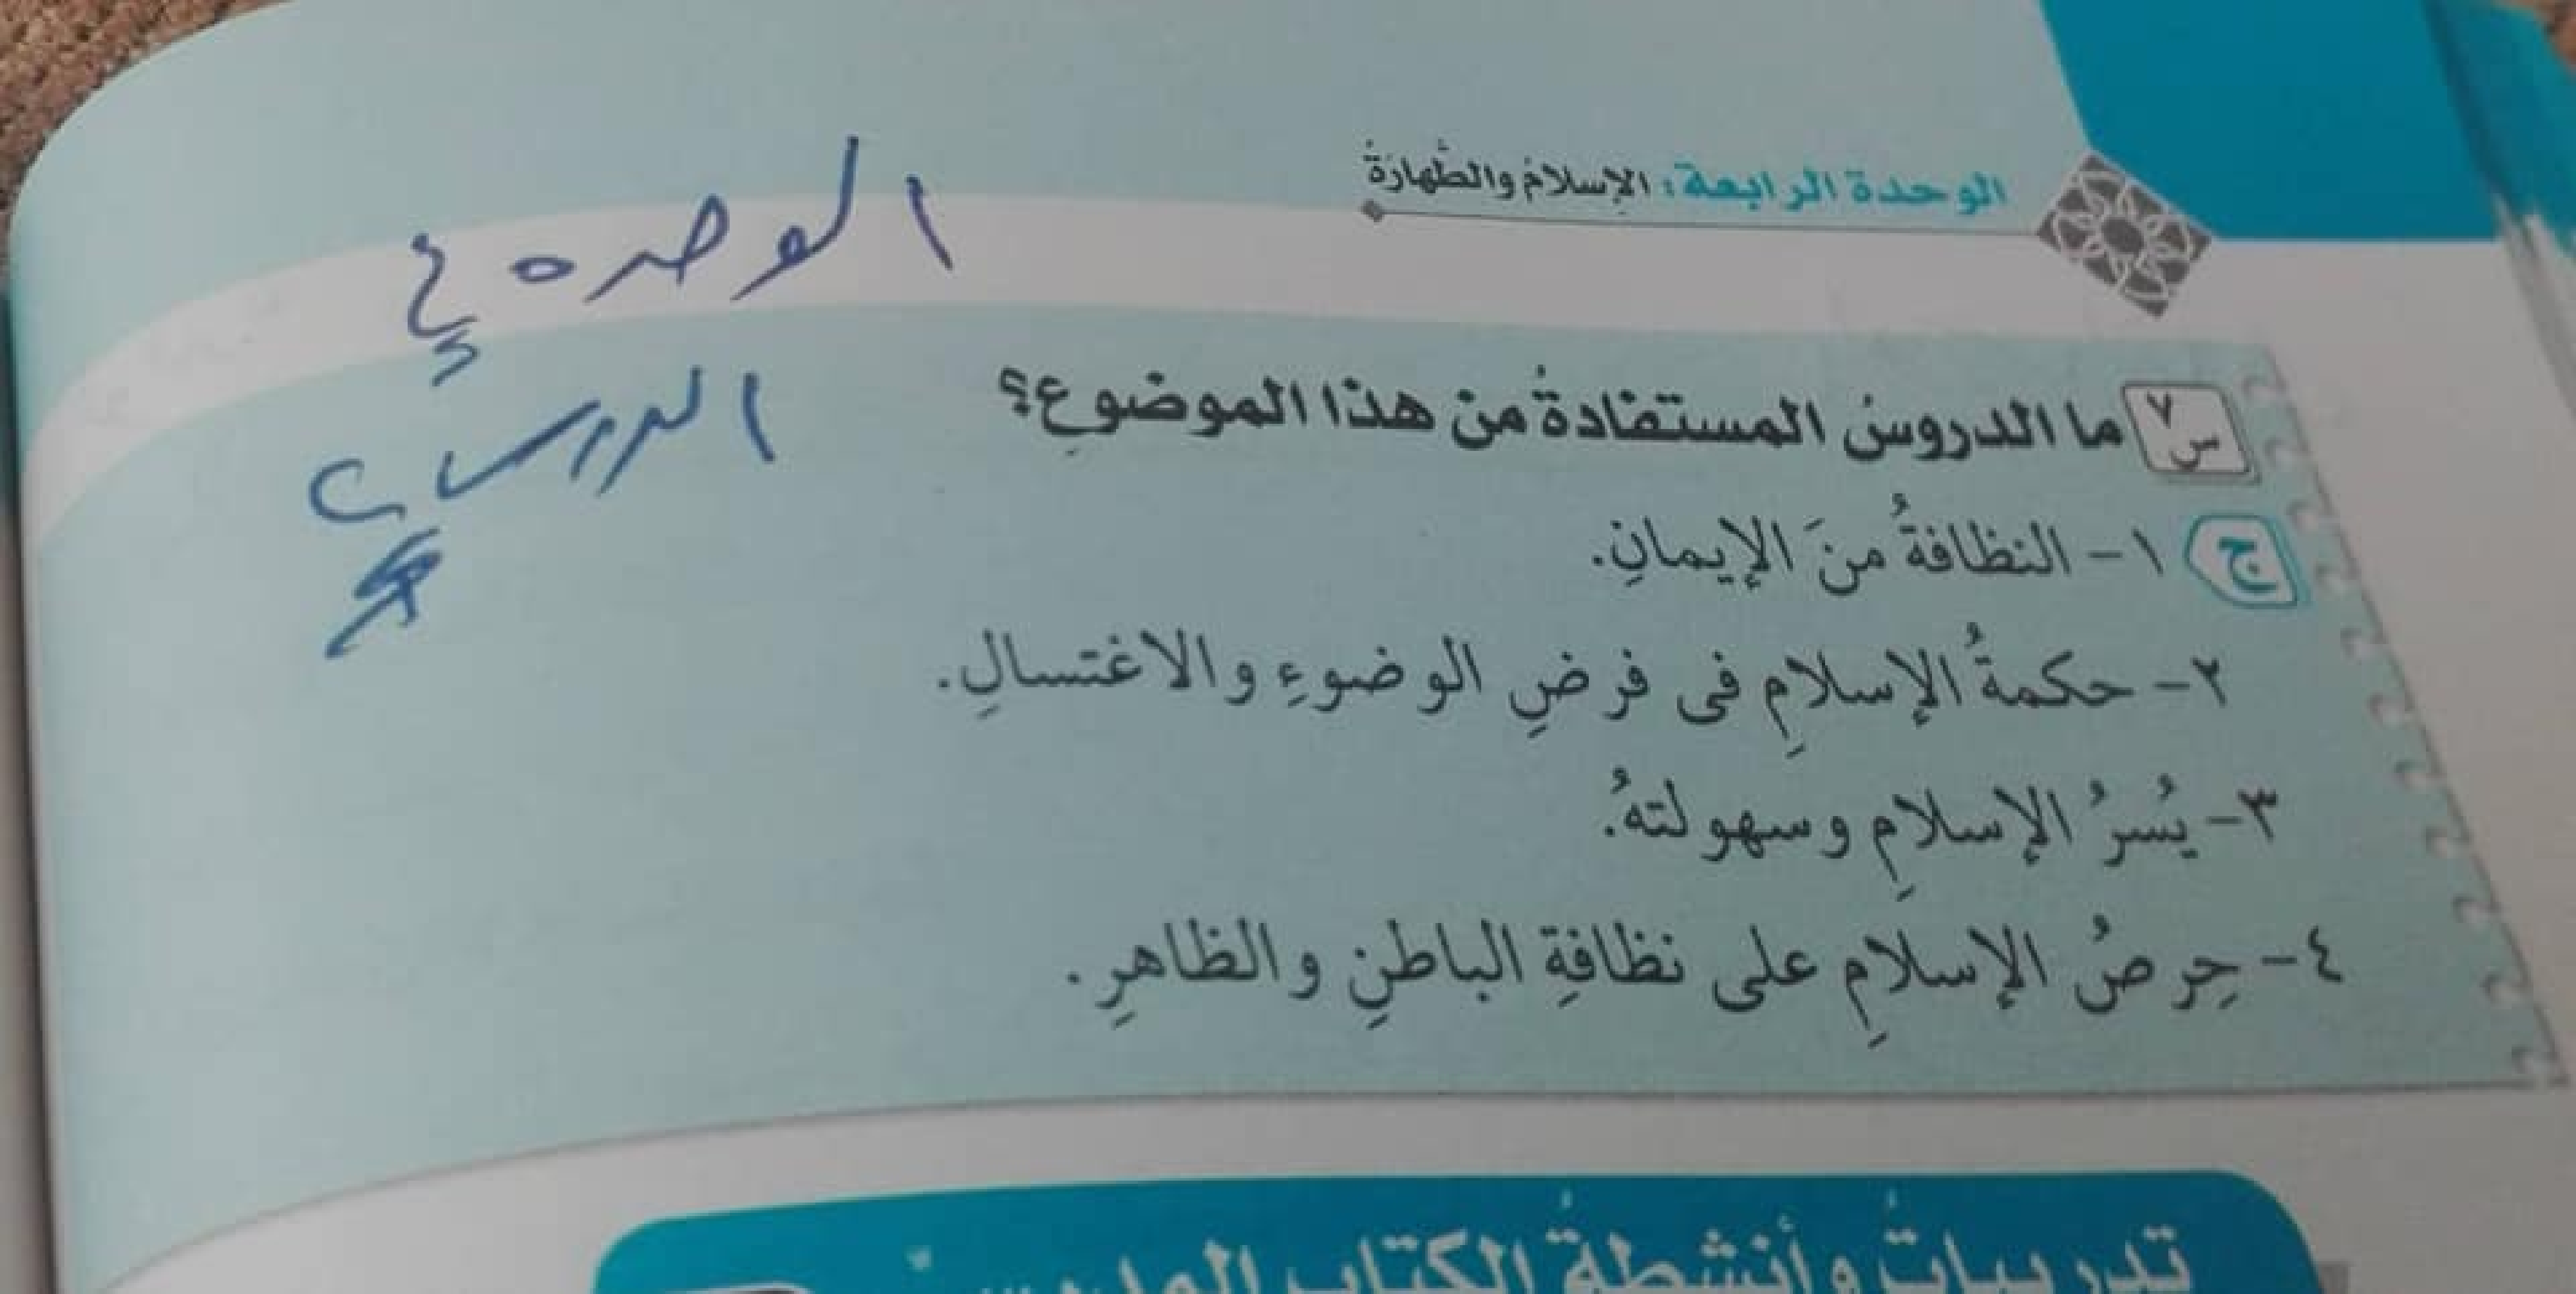 الوحدة الرابعة: الإسلامُ والطَّهارَةُ
الوحده ٤
الدرس
س٧ ما الدروسُ المستفادةُ من هذا الموضوعِ؟
ج ١- النظافةُ منَ الإيمانِ.
٢- حكمةُ الإسلامِ فى فرضِ الوضوءِ والاغتسالِ.
٣- يُسرُ الإسلامِ وسهولتهُ.
٤- حِرصُ الإسلامِ على نظافةِ الباطنِ والظاهرِ.
تدريباتُ وأنشطةُ الكتاب